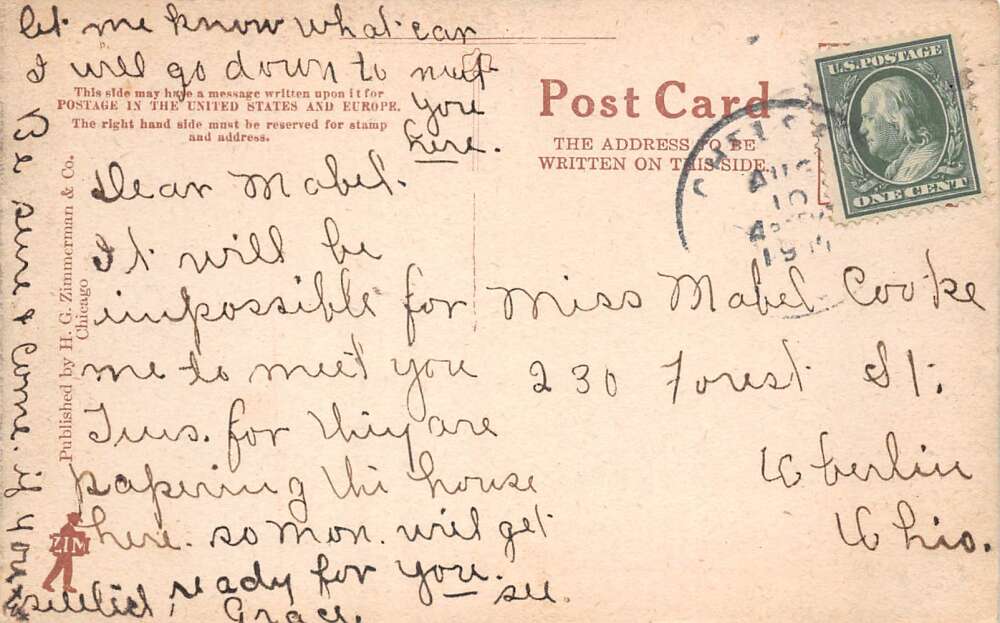 let me know what car
I will go down to meet
you
here.
This side may have a message written upon it for
POSTAGE IN THE UNITED STATES AND EUROPE.
The right hand side must be reserved for stamp
and address.
Dear Mabel.
It will be
impossible for
me to meet you
Tues. for they are
papering the house
here. so Mon. will get
ready for you. see.
Grace.
Be sure & Come. if you
Published by H. G. Zimmerman & Co.
Chicago
ZIM
Post Card
THE ADDRESS TO BE
WRITTEN ON THIS SIDE
U.S. POSTAGE
ONE CENT
AUG
10
Miss Mabel Cooke
230 Forest St.
Oberlin
Ohio.